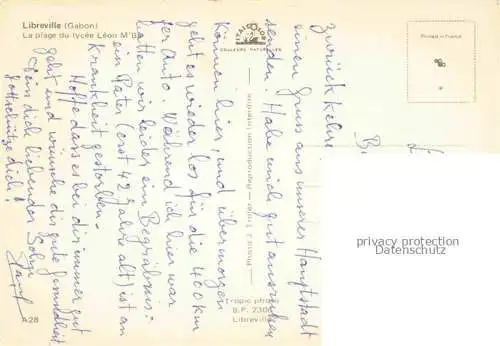 Libreville (Gabon)
La plage du lycée Léon M'Ba
COULEURS NATURELLES
Printed in France
Zurück kehre
einen Gruss aus unserer Hauptstadt
senden. Habe mich gut ausruhen
können hier, und übermorgen
geht es wieder los für die 400 km
per Auto. Während ich hier war
hatten wir leider ein Begräbnis:
ein Pater (erst 42 Jahre alt) ist an
Krankheit gestorben.
Hoffe dass es bei dir immer gut
geht und wünsche dir gute Gesundheit
Dein dich liebender Sohn
Gott schütze dich!
Tropic photo
B.P. 230
Libreville
A28
privacy protection
Datenschutz